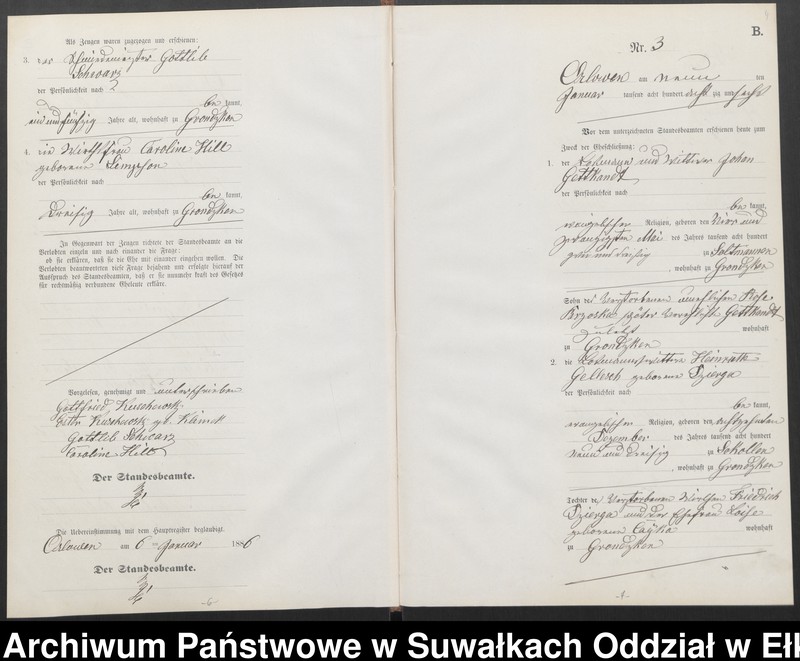 Als Zeugen waren zugezogen und erschienen:
3. der Schmiedemeister Gottlieb
Schwarz
der Persönlichkeit nach
be kannt,
ein und fünfzig Jahre alt, wohnhaft zu Grondzken
4. die Wirthsfrau Caroline Hill
geborene Simpson
der Persönlichkeit nach
be kannt,
dreißig Jahre alt, wohnhaft zu Grondzken
In Gegenwart der Zeugen richtete der Standesbeamte an die
Verlobten einzeln und nach einander die Frage:
ob sie erklären, daß sie die Ehe mit einander eingehen wollen. Die
Verlobten beantworteten diese Frage bejahend und erfolgte hierauf der
Ausspruch des Standesbeamten, daß er sie nunmehr kraft des Gesetzes
für rechtmäßig verbundene Eheleute erkläre.
Vorgelesen, genehmigt und unterschrieben
Gottfried
geb.
Gottlieb Schwarz
Caroline Hill
Der Standesbeamte.
Die Uebereinstimmung mit dem Hauptregister beglaubigt.
Orlowen am 6 ten Januar 1886
Der Standesbeamte.
B.
Nr. 3
Orlowen am neun ten
Januar tausend acht hundert acht zig und sechs
Vor dem unterzeichneten Standesbeamten erschienen heute zum
Zweck der Eheschließung:
1. der Losmann und Wittwer Johan
Gettkandt
der Persönlichkeit nach
be kannt,
evangelischer Religion, geboren den vier und
zwanzigsten Mai des Jahres tausend acht hundert
zwei und dreißig zu Soltmannen
, wohnhaft zu Grondzken
Sohn der verstorbenen unehelichen Rosa
Brzoska später verehelichte Gettkandt
zuletzt wohnhaft
zu Grondzken
2. die Losmannswittwe Heinriette
Gellesch geborene Dzierga
der Persönlichkeit nach
be kannt,
evangelischer Religion, geboren den achtzehnten
Dezember des Jahres tausend acht hundert
neun und dreißig zu Sokollen
, wohnhaft zu Grondzken
Tochter des verstorbenen Wirthen Friedrich
Dzierga und der Ehefrau Loise
geborene Cayka wohnhaft
zu Grondzken
Archiwum Państwowe w Suwałkach Oddział w Ełk